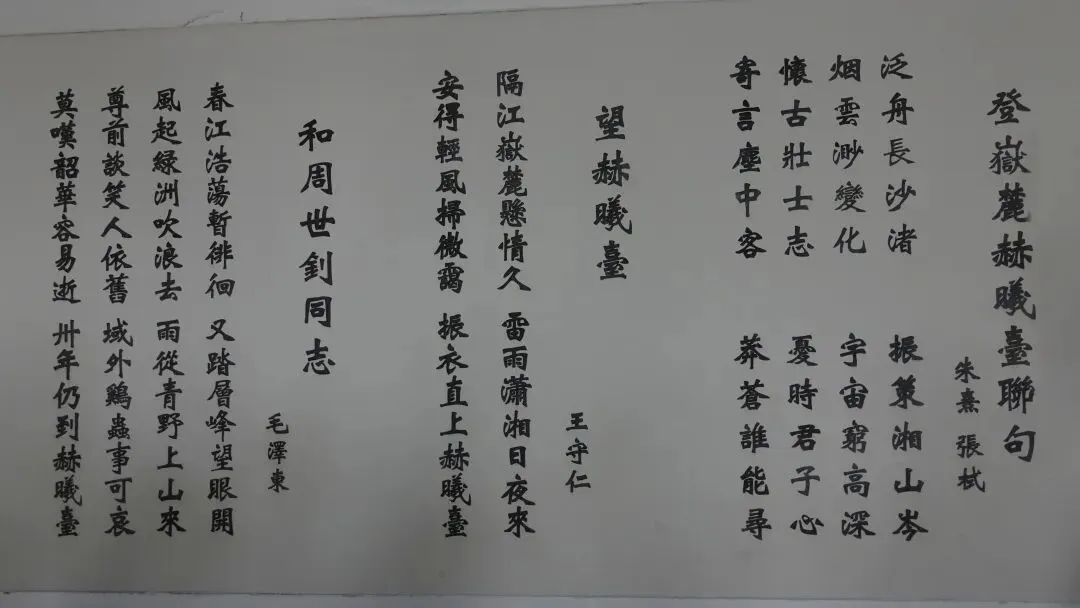 登嶽麓赫曦臺聯句
朱熹 張栻
泛舟長沙渚 振策湘山岑
烟雲渺變化 宇宙窮高深
懷古壯士志 憂時君子心
寄言塵中客 莽蒼誰能尋
望赫曦臺
王守仁
隔江嶽麓懸情久 雷雨瀟湘日夜來
安得輕風掃微靄 振衣直上赫曦臺
和周世釗同志
毛澤東
春江浩蕩暫徘徊 又踏層峰望眼開
風起緑洲吹浪去 雨從青野上山來
尊前談笑人依舊 域外鷄蟲事可哀
莫嘆韶華容易逝 卅年仍到赫曦臺